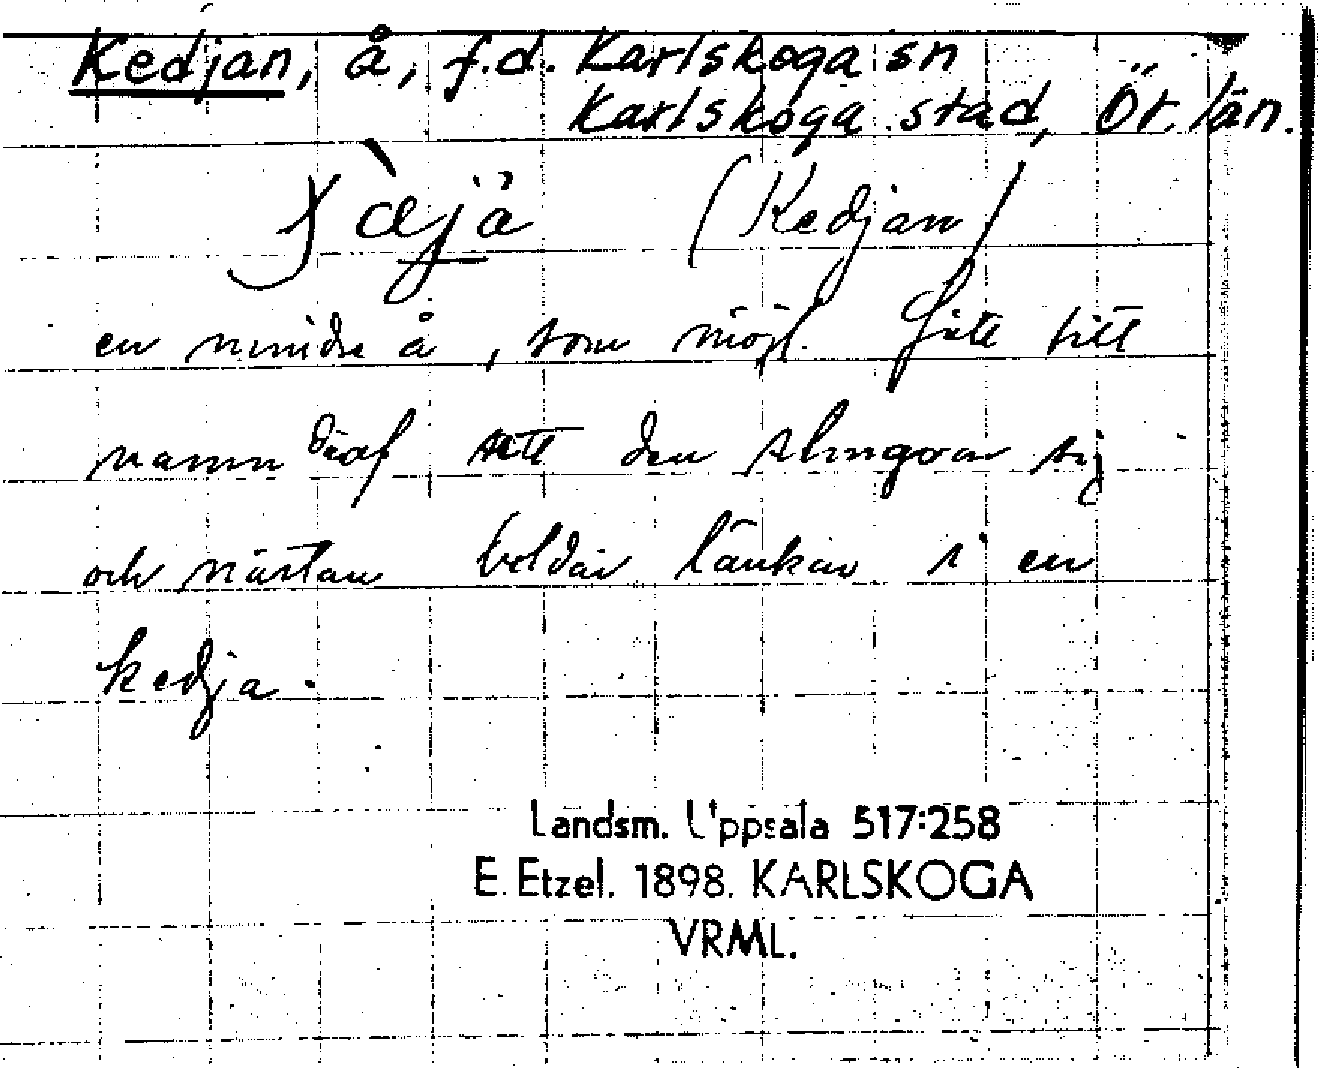 Kedjan, å, f.d. Karlskoga sn
Karlskoga stad, Ör. län.
(Kedjan)
en mindre å, som möjl. fått sitt
namn deraf att den slingrar sig
och nästan bildar länkar i en
kedja.
Landsm. Uppsala 517:258
E. Etzel. 1898. KARLSKOGA
VRML.